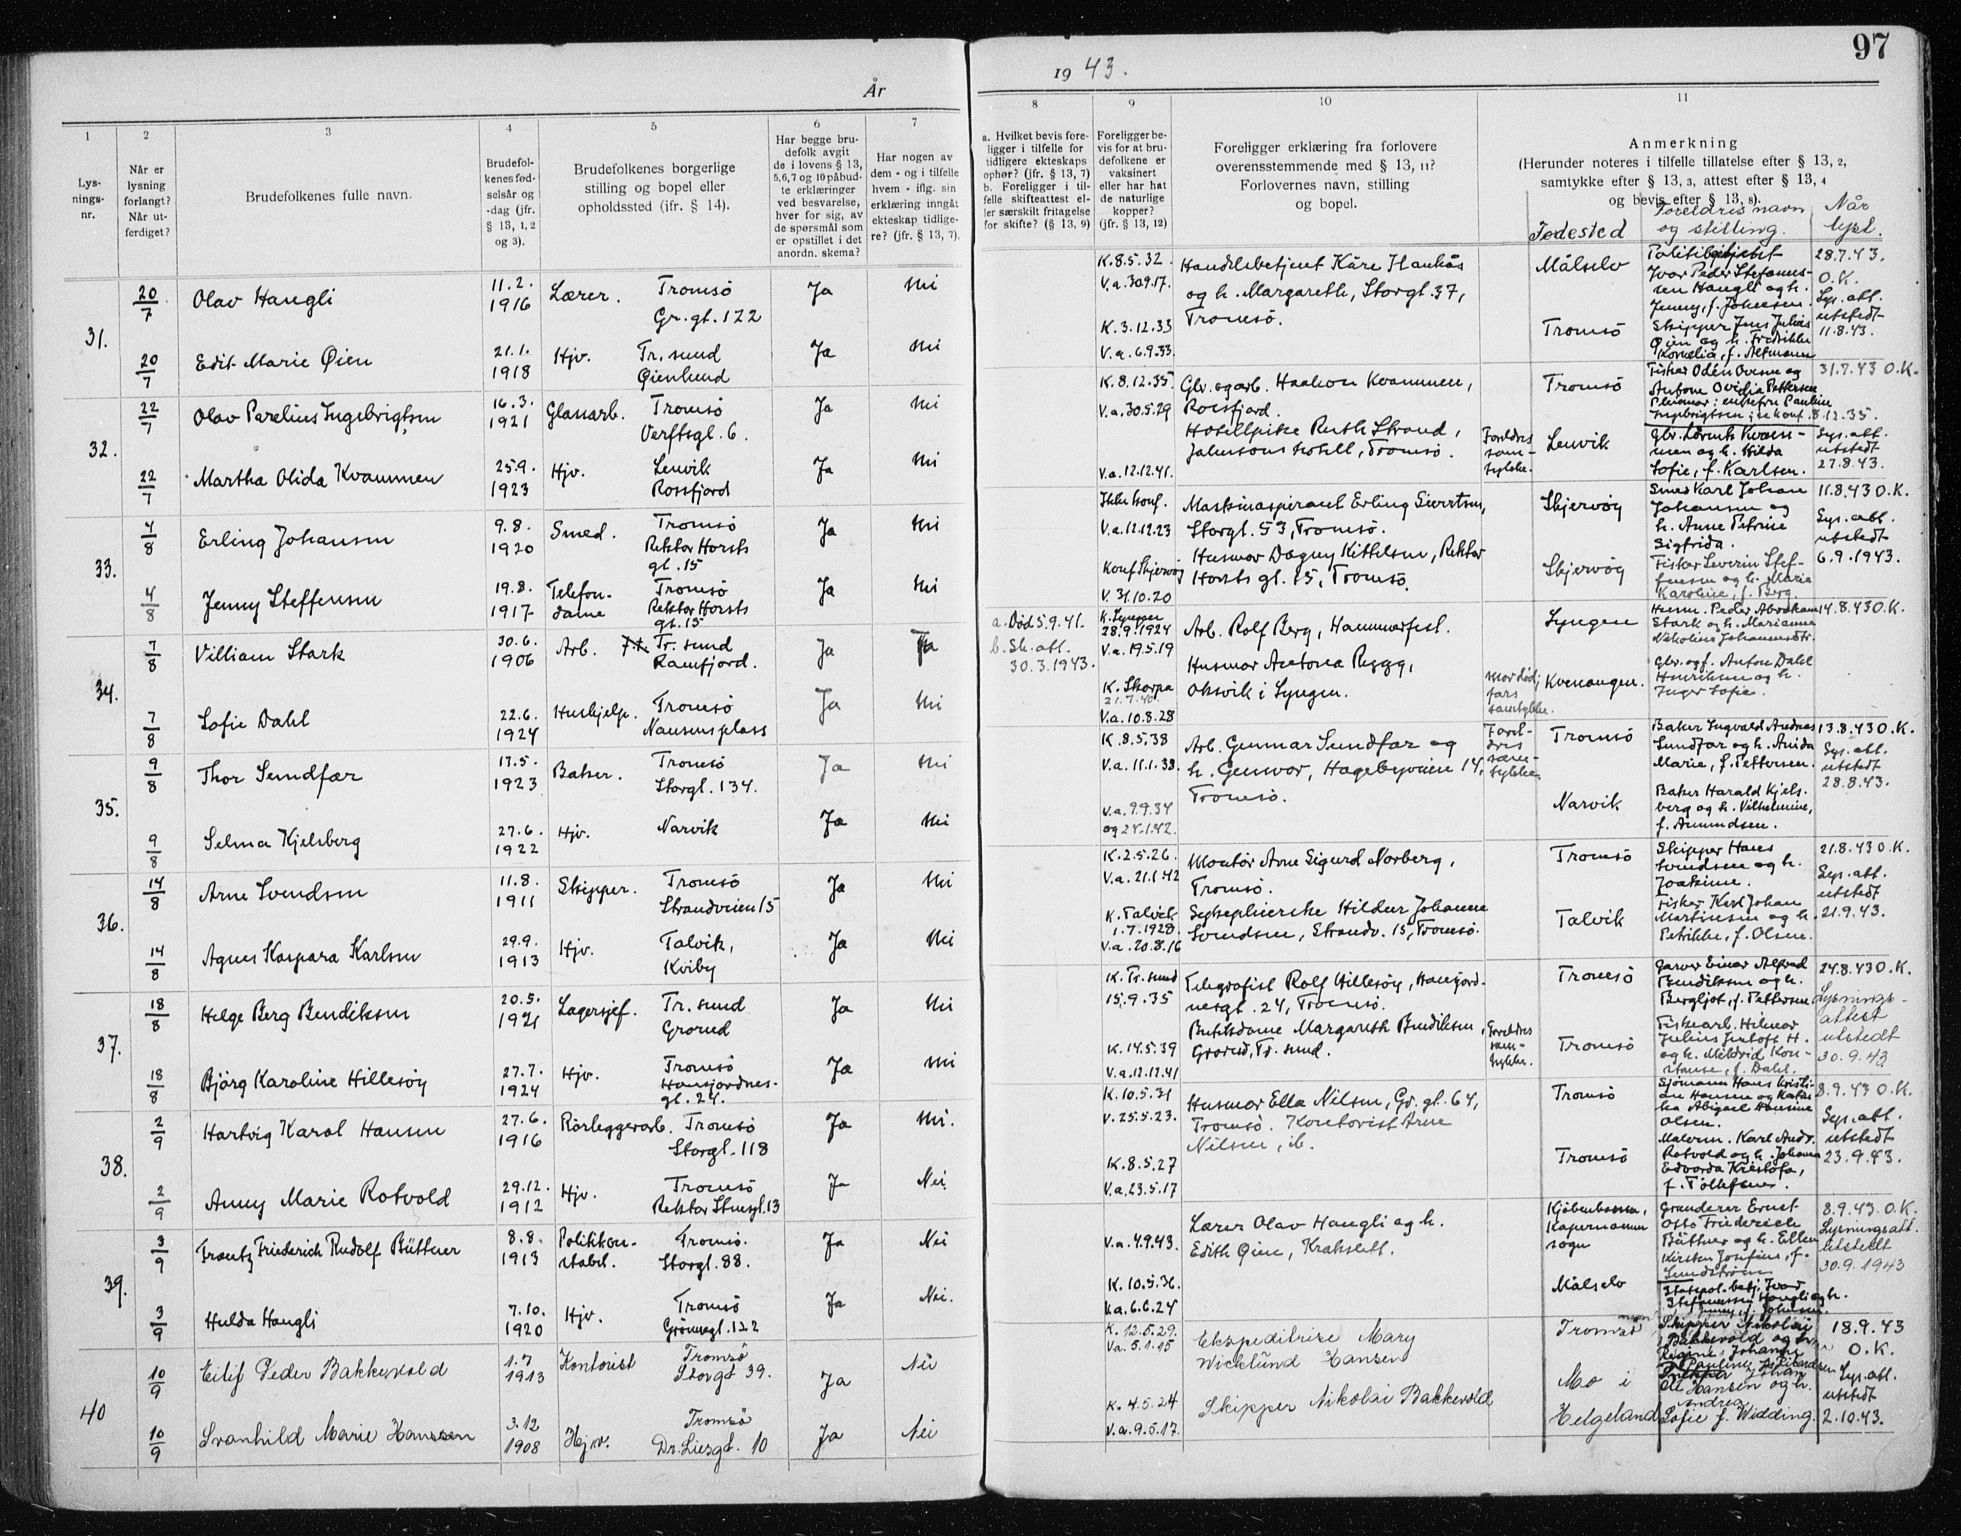 97
År 1943.
1 2 3 4 5 6 7 8 9 10 11
Lysningsnr.
Når er lysning forlangt? Når utferdiget?
Brudefolkenes fulle navn.
Brudefolkenes fødselsår og -dag (jfr. § 13, 1, 2 og 3).
Brudefolkenes borgerlige stilling og bopel eller opholdssted (ifr. § 14).
Har begge brudefolk avgit de i lovens § 13, 5, 6, 7 og 10 påbudte erklæringer ved besvarelse, hver for sig, av de spørsmål som er opstillet i det anordn. skema?
Har nogen av dem - og i tilfelle hvem - iflg. sin erklæring inngåt ekteskap tidligere? (jfr. § 13, 7).
a. Hvilket bevis foreligger i tilfelle for tidligere ekteskaps ophør? (jfr. § 13, 7) b. Foreligger i tilfelle skifteattest eller særskilt fritagelse for skifte? (§ 13, 9)
Foreligger bevis for at brudefolkene er vaksinert eller har hat de naturlige kopper? (jfr. § 13, 12)
Foreligger erklæring fra forlovere overensstemmende med § 13, 11? Forlovernes navn, stilling og bopel.
Anmerkning (Herunder noteres i tilfelle tillatelse efter § 13, 2, samtykke efter § 13, 3, attest efter § 13, 4 og bevis efter § 13, 8).
Fødested
Foreldres navn og stilling.
Når lyst.
31.
20/7 Olav Hangli 11.2. 1916 Lærer. Tromsö Gr.gt. 122 Ja Nei
K. 8.5.32. V.a. 30.9.17. Handelsbetjent Kåre Haukås og h. Margareth, Storgt. 37, Tromsö.
Målselv Politibetjent Ivar Peder Stefanussen Hangli og h. Jenny, f. Johnsen 28.7.43. O.K. Lys. att. utstedt 11.8.43.
20/7 Edit Marie Øien 21.1. 1918 Hjv. Tr.sund Øienlund Ja Nei
K. 3.12.33 V.a. 6.9.33.
Tromsö Skipper Jens Julius Øien og h. Fredrikke Kornelia, f. Altmann
32.
22/7 Olav Parelius Ingebrigtsen 16.3. 1921 Glassarb. Tromsö Verftsgt. 6. Ja Nei
K. 8.12.35 V.a. 30.5.29 Gbr. og arb. Haakon Kvammen, Rossfjord.
Tromsö Fisker Odén Ovesen og Antone Ovidia Pettersen 31.7.43 O.K.
8.12.35.
22/7 Martha Olida Kvammen 25.9. 1923 Hjv. Lenvik Rossfjord Ja Nei
V.a. 12.12.41. Hotellpike Ruth Strand, Johnsons hotell, Tromsö.
Foreldres samtykke. Lenvik Gbr. Lorents Kvammen og h. Hilda Sofie, f. Karlsen. Lys. att. utstedt 27.8.43.
33.
4/8 Erling Johansen 9.8. 1920 Smed. Tromsö Rektor Horsts gt. 15 Ja Nei
Ikke konf. V.a. 12.12.23 Maskinaspirant Erling Sivertsen, Storgt. 53, Tromsö.
Skjervöy Smed Karl Johan Johansen og h. Anne Petrine Sigfrida. 11.8.43 O.K. Lys. att. utstedt 6.9.1943.
4/8 Jenny Steffensen 19.8. 1917 Telefondame Tromsö Rektor Horsts gt. 15 Ja Nei
Konf Skjervöy V. 31.10.20 Husmor Dagny Kittelsen, Rektor Horsts gt. 15, Tromsö.
Skjervöy Fisker Severin Steffensen og h. Marie Karoline, f. Berg.
34.
7/8 Villiam Stark 30.6. 1906 Arb. Tr. sund Ramfjord. Ja Ja
a. Död 5.9.41. b. Sk. att. 30.3.1943. K. Lyngen 28.9.1924 V.a. 19.5.19 Arb. Rolf Berg, Hammerfest.
Lyngen Husm. Peder Abraham Stark og h. Marianna Nikoline Johannesdtr. 14.8.43 O.K.
7/8 Sofie Dahl 22.6. 1924 Hushjelp. Tromsö Nansensplass Ja Nei
K. Skorpa 21.7.40. V.a. 10.8.28 Husmor Antona Rygg, Oksvik i Lyngen.
Mor död, fars samtykke. Kvenangen. Gbr. og f. Anton Dahl Henriksen og h. Inger Sofie.
35.
9/8 Thor Sundfær 17.5. 1923 Baker. Tromsö Storgt. 134. Ja Nei
K. 8.5.38 V.a. 11.1.38. Arb. Gunnar Sundfær og h. Gunvor, Hagebyveien 14, Tromsö.
Foreldres samtykke Tromsö Baker Ingvald Andreas Sundfær og h. Anida Marie, f. Pettersen. 13.8.43 O.K. Lys. att. utstedt 28.8.43.
9/8 Selma Kjelsberg 27.6. 1922 Hjv. Narvik Ja Nei
V.a. 9.9.34 og 24.1.42.
Narvik Baker Harald Kjelsberg og h. Vilhelmine, f. Amundsen.
36.
14/8 Arne Svendsen 11.8. 1911 Skipper. Tromsö Strandveien 15 Ja Nei
K. 2.5.26. V.a. 21.1.42 Montör Arne Sigurd Norberg, Tromsö.
Tromsö Skipper Hans Svendsen og h. Joakime. 21.8.43 O.K. Lys. att. utstedt 21.9.43.
14/8 Agnes Kaspara Karlsen 29.9. 1913 Hjv. Talvik, Kviby Ja Nei
K. Talvik 1.7.1928. V.a. 20.8.16 Sykepleierske Hildur Johanne Svendsen, Strandv. 15, Tromsö.
Talvik Fisker Karl Johan Martinsen og h. Petrikke, f. Olsen.
37.
18/8 Helge Berg Bendiksen 20.5. 1921 Lagersjef. Tr. sund Grönud Ja Nei
K. Tr. sund 15.9.35 Telegrafist Rolf Hillesöy, Hansjordnesgt. 24, Tromsö.
Tromsö Garver Einar Alfred Bendiksen og h. Bergljot, f. Pettersen 24.8.43 O.K. Lysningsattest utstedt 30.9.43
18/8 Björg Karoline Hillesöy 27.7. 1924 Hjv. Tromsö Hansjordnesgt. 24. Ja Nei
K. 14.5.39 V.a. 12.12.41 Butikkdame Margareth Bendiksen, Tr. sund.
Foreldres samtykke. Tromsö Fiskearb. Hilmar Julius H. og h. Mildrid Konstanse, f. Dahl.
38.
2/9 Hartvig Karol Hansen 27.6. 1916 Rörleggerarb. Tromsö Storgt. 118 Ja Nei.
K. 10.5.31 V. 25.5.23. Husmor Ella Nilsen, Gr. gt. 64, Tromsö. Kontorist Arne Nilsen, ib.
Tromsö Sjömann Hans Kristian Hansen og Abigael Hansine Olsen. 8.9.43 O.K. Lys. att. utstedt 23.9.43.
2/9 Anny Marie Rotvold 29.12. 1912 Hjv. Tromsö Rektor Steengt. 13 Ja Nei.
K. 8.5.27 V.a. 23.5.17
Tromsö Malerm. Karl Andr. Rotvold og h. Johanna Edvarda Kristofa, f. Tollefsen.
39.
3/9 Frantz Friederich Rudolf Büttner 8.8. 1913 Politikonstabel. Tromsö. Storgt. 88. Ja Nei
V.a. 4.9.43. Lærer Olav Hangli og h. Edith Øien, Krakslett.
Kjöbenhavn, Kapernaum sogn Granderer Ernst Otto Friederich Büttner og h. Ellen Kirsten Josefine, f. Sundström 8.9.43. O.K. Lysningsatt. utstedt 30.9.1943
3/9 Hulda Hangli 7.10. 1920 Hjv. Tromsö Grönnegt. 122 Ja Nei.
K. 10.5.36. V.a. 6.6.24
Målselv Statspol.betj. Ivar Stefanussen Hangli og h. Jenny, f. Johnsen.
40
10/9 Eilif Peder Bakkevold 1.7 1913 Kontorist Tromsö Storgt 39. Ja Nei
K. 12.5.29. Va. 5.1.15 Ekspeditrise Mary Wicklund Hansen
Tromsö Skipper Nikolai Bakkevold og Regine Johanne 18.9.43 O.K. Lys. att. utstedt 2.10.43.
10/9 Svanhild Marie Hanssen 3.12 1908 Hjv. Tromsö Dr. Liesgt. 10 Ja Nei
K. 4.5.24 V.a. 9.5.17. Skipper Nikolai Bakkevold
Mo i Helgeland Johan Hansen og h. Andrea Sofie f. Widding.